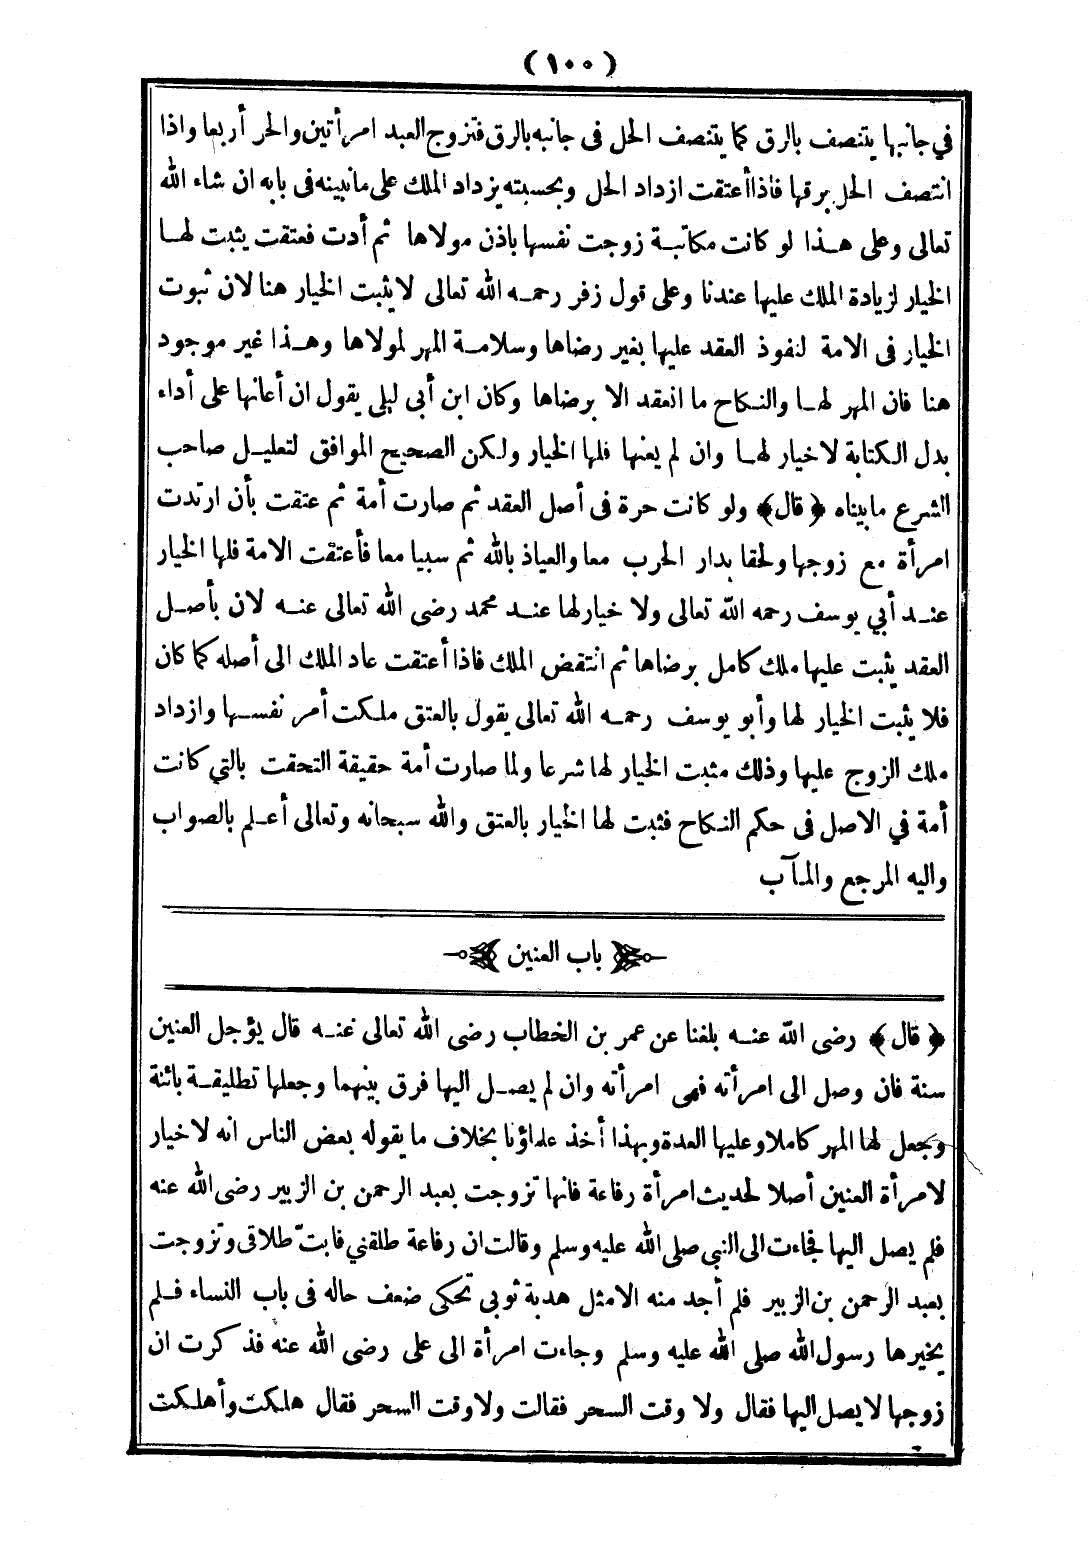 (١٠٠)
في جانبها يتنصف بالرق كما يتنصف الحل فى جانبه بالرق فتزوج العبد امرأتين والحر أربعا واذا
انتصف الحل برقها فاذا أعتقت ازداد الحل وبحسبته يزداد الملك على مانبينه فى بابه ان شاء الله
تعالى وعلى هذا لو كانت مكاتبة زوجت نفسها باذن مولاها ثم أدت فعتقت يثبت لها
الخيار لزيادة الملك عليها عندنا وعلى قول زفر رحمه الله تعالى لا يثبت الخيار هنا لان ثبوت
الخيار فى الامة لنفوذ العقد عليها بغير رضاها وسلامة المهر لمولاها وهذا غير موجود
هنا فان المهر لها والنكاح ما انعقد الا برضاها وكان ابن أبى ليلى يقول ان أعانها على أداء
بدل الكتابة لا خيار لها وان لم يعنها فلها الخيار ولكن الصحيح الموافق لتعليل صاحب
الشرع ما بيناه ﴿قال﴾ ولو كانت حرة فى أصل العقد ثم صارت أمة ثم عتقت بأن ارتدت
امرأة مع زوجها ولحقا بدار الحرب معا والعياذ بالله ثم سبيا معا فأعتقت الامة فلها الخيار
عند أبي يوسف رحمه الله تعالى ولا خيار لها عند محمد رضى الله تعالى عنه لان بأصل
العقد يثبت عليها ملك كامل برضاها ثم انتقض الملك فاذا أعتقت عاد الملك الى أصله كما كان
فلا يثبت الخيار لها وأبو يوسف رحمه الله تعالى يقول بالعتق ملكت أمر نفسها وازداد
ملك الزوج عليها وذلك مثبت الخيار لها شرعا ولما صارت أمة حقيقة التحقت بالتي كانت
أمة في الاصل فى حكم النكاح فثبت لها الخيار بالعتق والله سبحانه وتعالى أعلم بالصواب
واليه المرجع والمآب
باب العنين
﴿قال﴾ رضى الله عنه بلغنا عن عمر بن الخطاب رضى الله تعالى عنه قال يؤجل العنين
سنة فان وصل الى امرأته فهى امرأته وان لم يصل اليها فرق بينهما وجعلها تطليقة بائنة
وجعل لها المهر كاملا وعليها العدة وبهذا أخذ علماؤنا بخلاف ما يقوله بعض الناس انه لا خيار
لامرأة العنين أصلا لحديث امرأة رفاعة فانها تزوجت بعبد الرحمن بن الزبير رضى الله عنه
فلم يصل اليها فجاءت الى النبى صلى الله عليه وسلم وقالت ان رفاعة طلقني فابتّ طلاقى وتزوجت
بعبد الرحمن بن الزبير فلم أجد منه الا مثل هدبة ثوبى تحكى ضعف حاله فى باب النساء فلم
يخيرها رسول الله صلى الله عليه وسلم وجاءت امرأة الى على رضى الله عنه فذكرت ان
زوجها لا يصل اليها فقال ولا وقت السحر فقالت ولا وقت السحر فقال هلكت وأهلكت